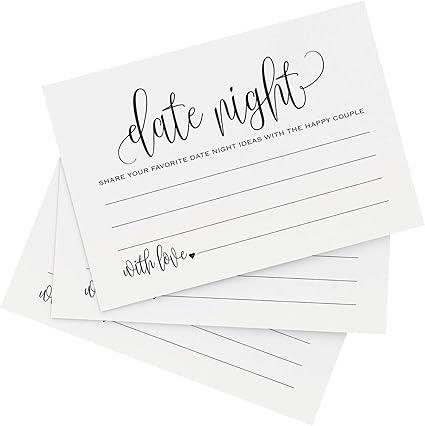 date night
SHARE YOUR FAVORITE DATE NIGHT IDEAS WITH THE HAPPY COUPLE
with love
w
w